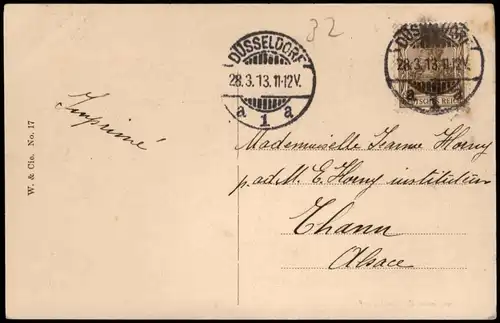 32
DÜSSELDORF
28.3.13.11-12V.
a 1 a
DÜSSELDORF
28.3.13.11-12V.
a 1 a
Imprimé
W. & Cie. No. 17
Mademoiselle Jeanne Horny
p. ad. M. E. Horny instituteur
Thann
Alsace